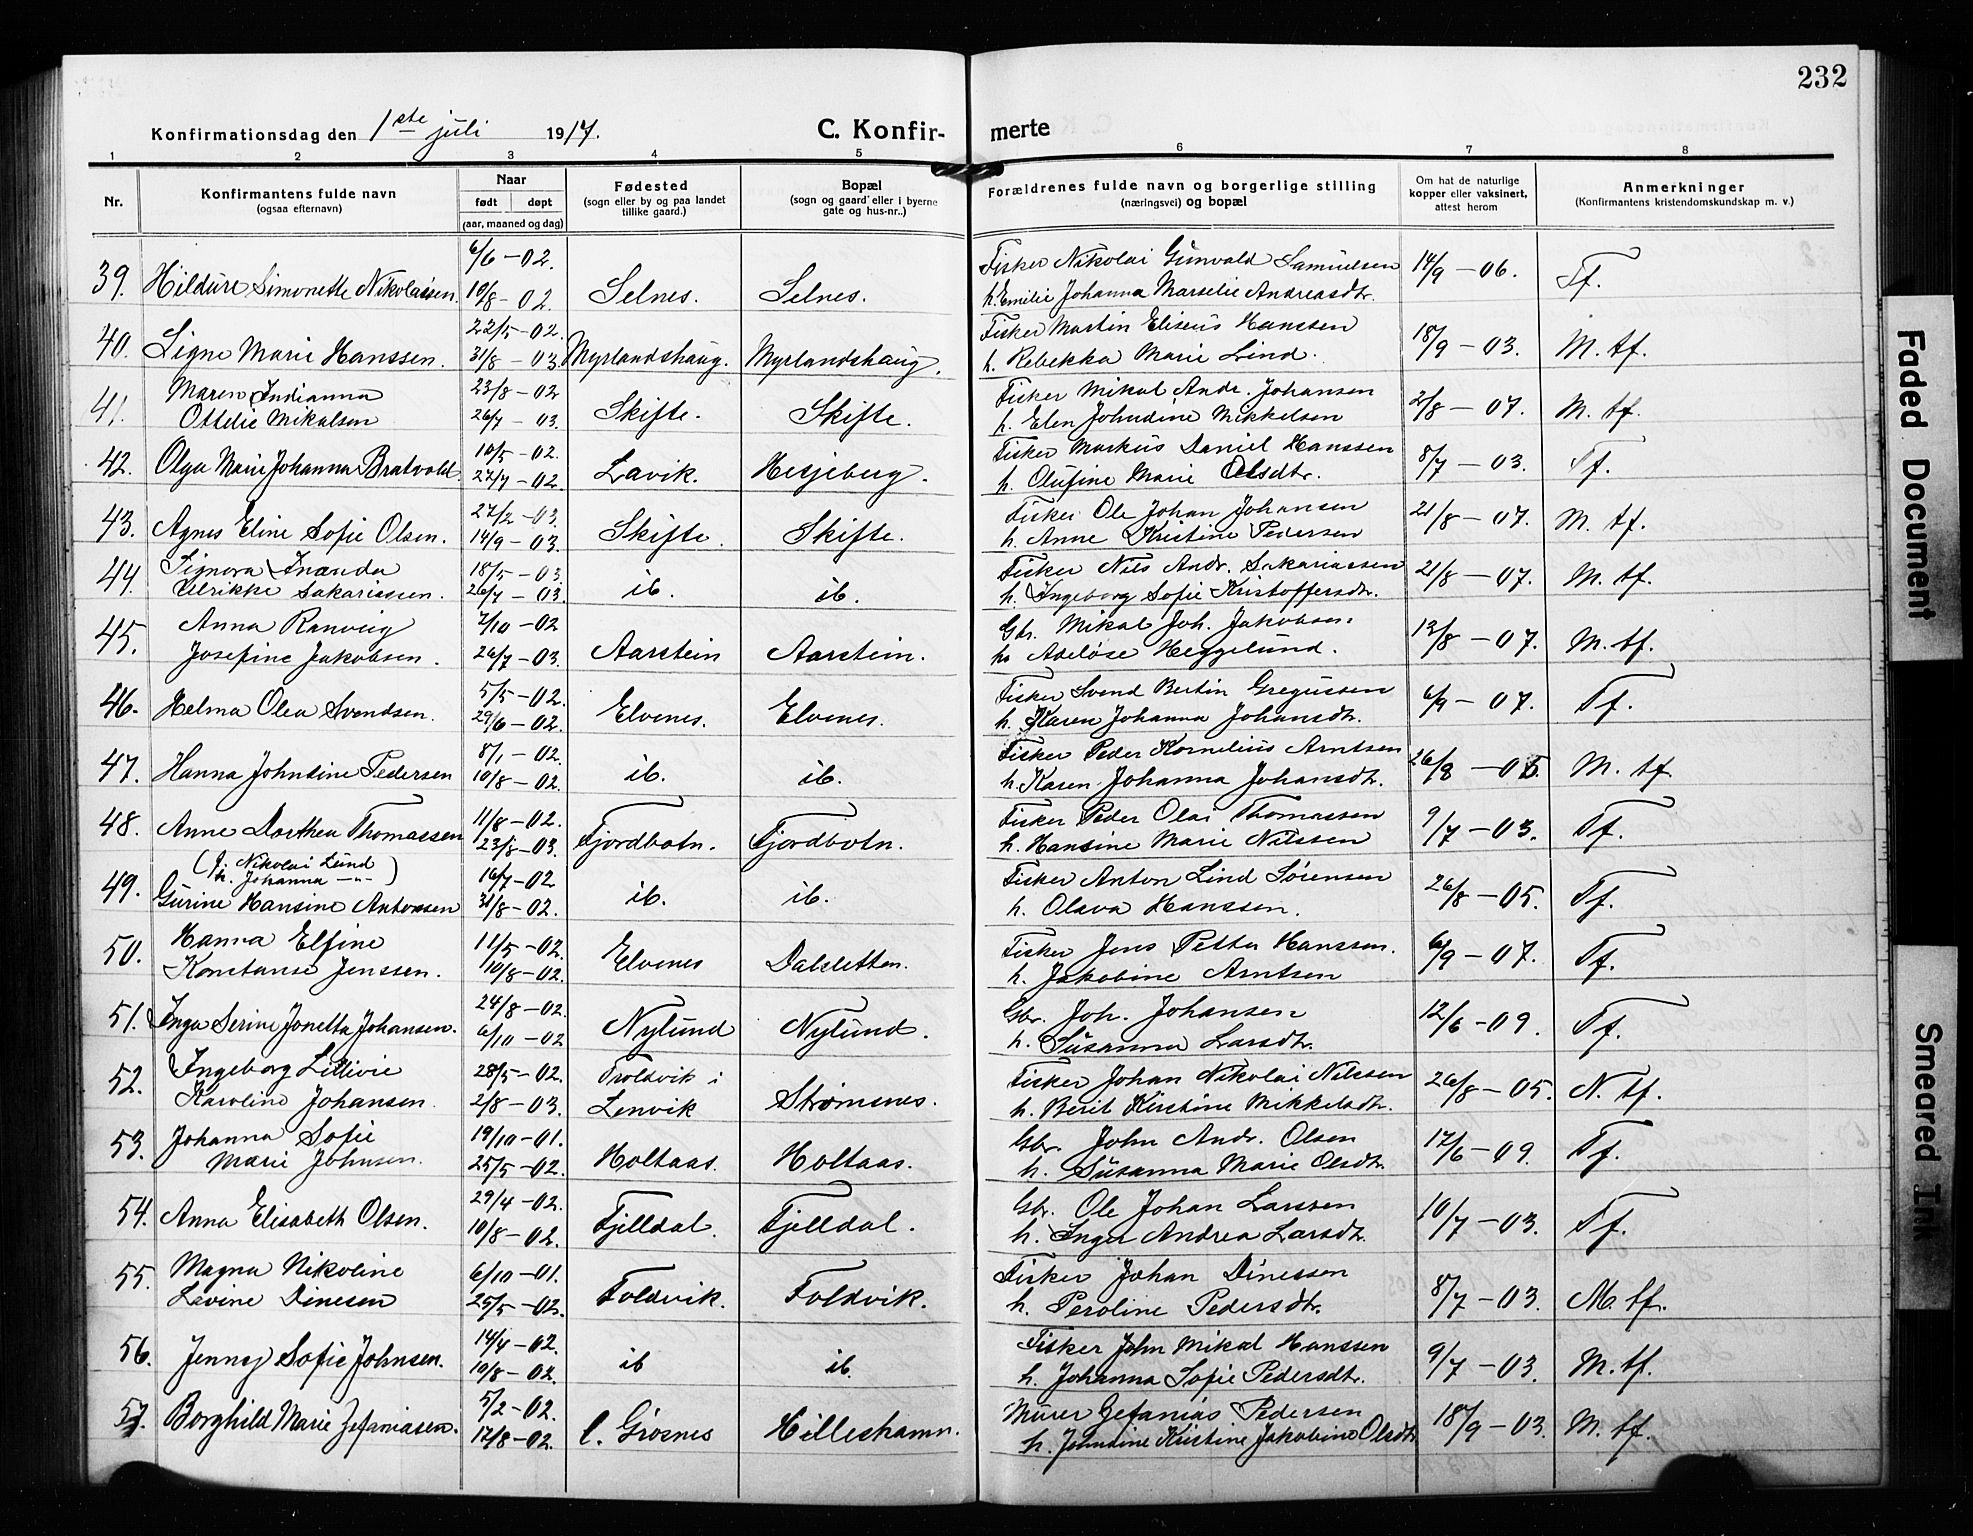 232
Konfirmationsdag den 1ste juli 1917. C. Konfir- merte
1 2 3 4 5 6 7 8
Nr. Konfirmantens fulde navn (ogsaa efternavn) Naar født døpt (aar, maaned og dag) Fødested (sogn eller by og paa landet tillike gaard.) Bopæl (sogn og gaard eller i byerne gate og hus-nr..) Forældrenes fulde navn og borgerlige stilling (næringsvei) og bopæl Om hat de naturlige kopper eller vaksinert, attest herom Anmerkninger (Konfirmantens kristendomskundskap m. v.)
6/6 - 02. Fisker Nikolai Gunvald Samuelsen 14/9 - 06. Tf.
39. Hildure Simonette Nikolaisen. 10/8 - 02. Selnes. Selnes. h. Emilie Johanna Marselie Andreasdtr.
22/5 - 02. Fisker Martin Eliseus Hanssen 18/9 - 03. M. tf.
40. Signe Marie Hanssen. 31/8 - 03. Myrlandshaug. Myrlandshaug. h. Rebekka Marie Lind.
Maren Indianna 23/8 - 02 Fisker Mikal Andr. Johansen 21/8 - 07. M. tf.
41. Ottelie Mikalsen 26/7 - 03. Skifte. Skifte. h. Elen Johndine Mikkelsen
10/5 - 02. Fisker Markus Daniel Hanssen 8/7 - 03. Tf.
42. Olga Marie Johanna Bratvold. 27/7 - 02. Lavik. Hesjeberg. h. Olufine Marie Olsdtr.
27/2 - 03. Fisker Ole Johan Johansen 21/8 - 07. M. tf.
43. Agnes Eline Sofie Olsen. 14/9 - 03. Skifte. Skifte. h. Anne Kristine Pedersen
Signora Inanda 18/5 - 03. Fisker Nils Andr. Sakariassen 21/8 - 07. M. tf.
44. Ulrikke Sakariassen. 26/7 - 03. ib. ib. h. Ingeborg Sofie Kristoffersdtr.
Anna Ranveig 7/10 - 02 Gbr. Mikal Joh. Jakobsen 13/8 - 07. M. tf.
45. Josefine Jakobsen. 26/7 - 03. Aarstein Aarstein. h. Adeløse Heggelund.
5/5 - 02. Fisker Svend Bertin Gregussen 6/9 - 07. Tf.
46. Helma Olea Svendsen. 29/6 - 02. Elvenes. Elvenes. h. Karen Johanna Johansdtr.
8/1 - 02. Fisker Peder Kornelius Arntsen 26/8 - 05. M. tf.
47. Hanna Johnsine Pedersen 10/8 - 02. ib. ib. h. Karen Johanna Johansdtr.
11/8 - 02. Fisker Peder Olai Thomassen 9/7 - 03. Tf.
48. Anne Dorthea Thomassen 23/8 - 03. Fjordbotn. Fjordbotn. h. Hansine Marie Nilssen
(f. Nikolai Lund
h. Johanna -"-) 16/7 - 02 Fisker Anton Lind Sørensen 26/8 - 05. Tf.
49. Gurine Hansine Antonsen 31/8 - 02. ib. ib. h. Olava Hanssen.
Hanna Elfine 11/5 - 02. Fisker Jens Petter Hanssen. 6/9 - 07. Tf.
50. Konstanse Jenssen. 10/8 - 02. Elvenes Dalsletten. h. Jakobine Arntsen
24/8 - 02. Gbr. Joh. Johansen 12/6 - 09. Tf.
51. Inga Serine Jonetta Johansen. 6/10 - 02 Nylund Nylund. h. Susanna Larsdtr.
Ingeborg Lillivie 28/5 - 02. Troldvik i Fisker Johan Nikolai Nilssen 26/8 - 05. N. tf.
52. Karoline Johansen. 2/8 - 03. Lenvik Strømsnes. h. Berit Kirstine Mikkelsdtr.
Johanna Sofie 19/10 - 01. Gbr. John Andr. Olsen 17/6 - 09. Tf.
53. Marie Johnsen. 25/5 - 02. Holtaas. Holtaas. h. Susanna Marie Olsdtr.
29/4 - 02. Gbr. Ole Johan Larssen 10/7 - 03. Tf.
54. Anna Elisabeth Olsen. 10/8 - 02. Fjelldal. Fjelldal. h. Inger Andrea Larsdtr.
Magna Nikoline 6/10 - 01. Fisker Johan Dinessen 8/7 - 03. M. tf.
55. Levine Dinesen 25/5 - 02. Foldvik. Foldvik. h. Peroline Pedersdtr.
14/4 - 02. Fisker John Mikal Hanssen 9/7 - 03. M. tf.
56. Jenny Sofie Johnsen. 10/8 - 02. ib ib. h. Johanna Sofie Pedersdtr.
5/2 - 02. Murer Zefanias Pedersen 18/9 - 03. M. tf.
57. Borghild Marie Zefaniasen. 17/8 - 02. l. Grosnes Hilleshamn. h. Johndine Kristine Jakobine Olsdtr
Faded Document
Smeared Ink